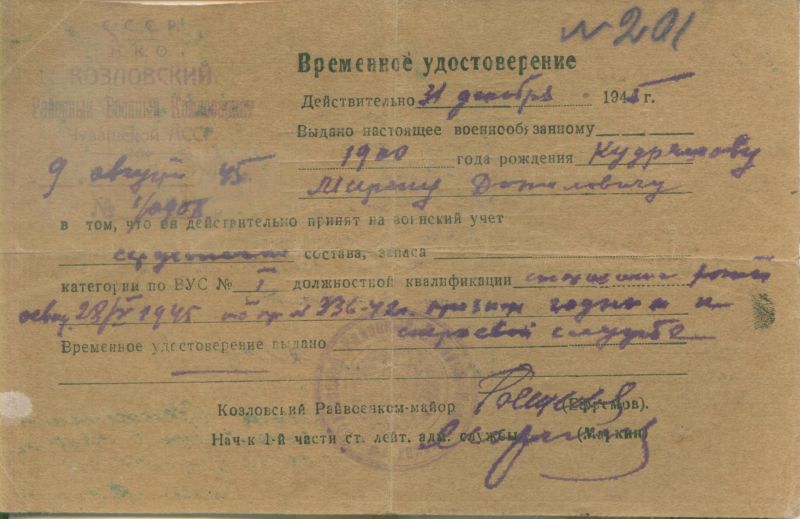 № 201
СССР
НКО
КОЗЛОВСКИЙ
Районный Военный Комиссариат
Чувашской АССР
9 август 45
№
Временное удостоверение
Действительно 31 декабря 1945 г.
Выдано настоящее военнообязанному
1900 года рождения Кудряшову
Мирону Даниловичу
в том, что он действительно принят на воинский учет
состава, запаса
категории по ВУС № 1 должностной квалификации
28/V 1945 по пр № 336-42г. признан годным к
строевой службе
Временное удостоверение выдано
Козловский Райвоенком-майор (Ефремов).
Нач-к 1-й части ст. лейт. адм. службы (Маркин)